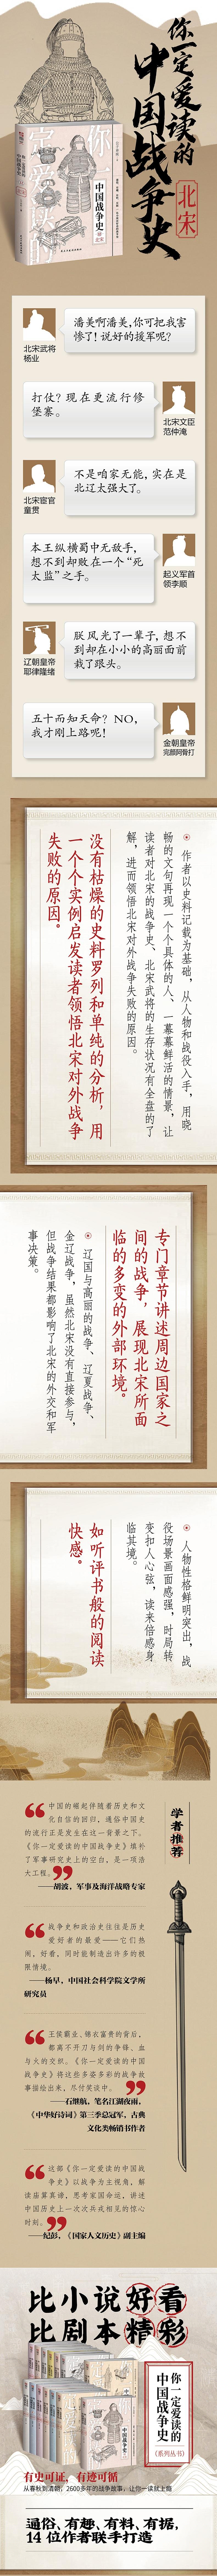 你一定爱读的
中国战争史
北宋
你一定爱读的
中国战争史
北宋
潘美啊潘美,你可把我害
惨了!说好的援军呢?
北宋武将
杨业
打仗?现在更流行修
堡寨。
北宋文臣
范仲淹
不是咱家无能,实在是
北辽太强大了。
北宋宦官
童贯
本王纵横蜀中无敌手,
想不到却败在一个“死
太监”之手。
起义军首
领李顺
朕风光了一辈子,想不
到却在小小的高丽面前
栽了跟头。
辽朝皇帝
耶律隆绪
五十而知天命?NO,
我才刚上路呢!
金朝皇帝
完颜阿骨打
作者以史料记载为基础,从人物和战役入手,用晓
畅的文句再现一个个具体的人、一幕幕鲜活的情景,让
读者对北宋的战争史、北宋武将的生存状况有全盘的了
解,进而领悟北宋对外战争失败的原因。
没有枯燥的史料罗列和单纯的分析,用
一个个实例启发读者领悟北宋对外战争
失败的原因。
专门章节讲述周边国家之
间的战争,展现北宋所面
临的多变的外部环境。
辽国与高丽的战争、辽夏战争、
金辽战争,虽然北宋没有直接参与,
但战争结果都影响了北宋的外交和军
事决策。
人物性格鲜明突出,战
役场景画面感强,时局转
变扣人心弦,读来倍感身
临其境。
如听评书般的阅读
快感。
学者推荐
中国的崛起伴随着历史和文
化自信的回归,通俗中国史
的流行正是发生在这一背景之下。
《你一定爱读的中国战争史》填补
了军事研究史上的空白,是一项浩
大工程。
——胡波,军事及海洋战略专家
战争史和政治史往往是历史
爱好者的最爱——它们热
闹,好看,同时能制造出许多的极
限情境。
——杨早,中国社会科学院文学所
研究员
王侯霸业、锦衣富贵的背后,
都离不开刀与剑的争锋、血
与火的交织。《你一定爱读的中国
战争史》将这些多姿多彩的战争故
事描绘出来,尽付笑谈中。
——石继航,笔名江湖夜雨,
《中华好诗词》第三季总冠军,古典
文化类畅销书作者
这部《你一定爱读的中国战
争史》以战争为主视角,解
读庙算真谛,思考家国命运,讲述
中国历史上一次次兵戎相见的惊心
时刻。
——纪彭,《国家人文历史》副主编
比小说好看
比剧本精彩
你一定爱读的
中国战争史
(系列丛书)
有史可证,有迹可循
从春秋到清朝,2600多年的战争故事,让你一读就上瘾
通俗、有趣、有料、有据,
14 位作者联手打造